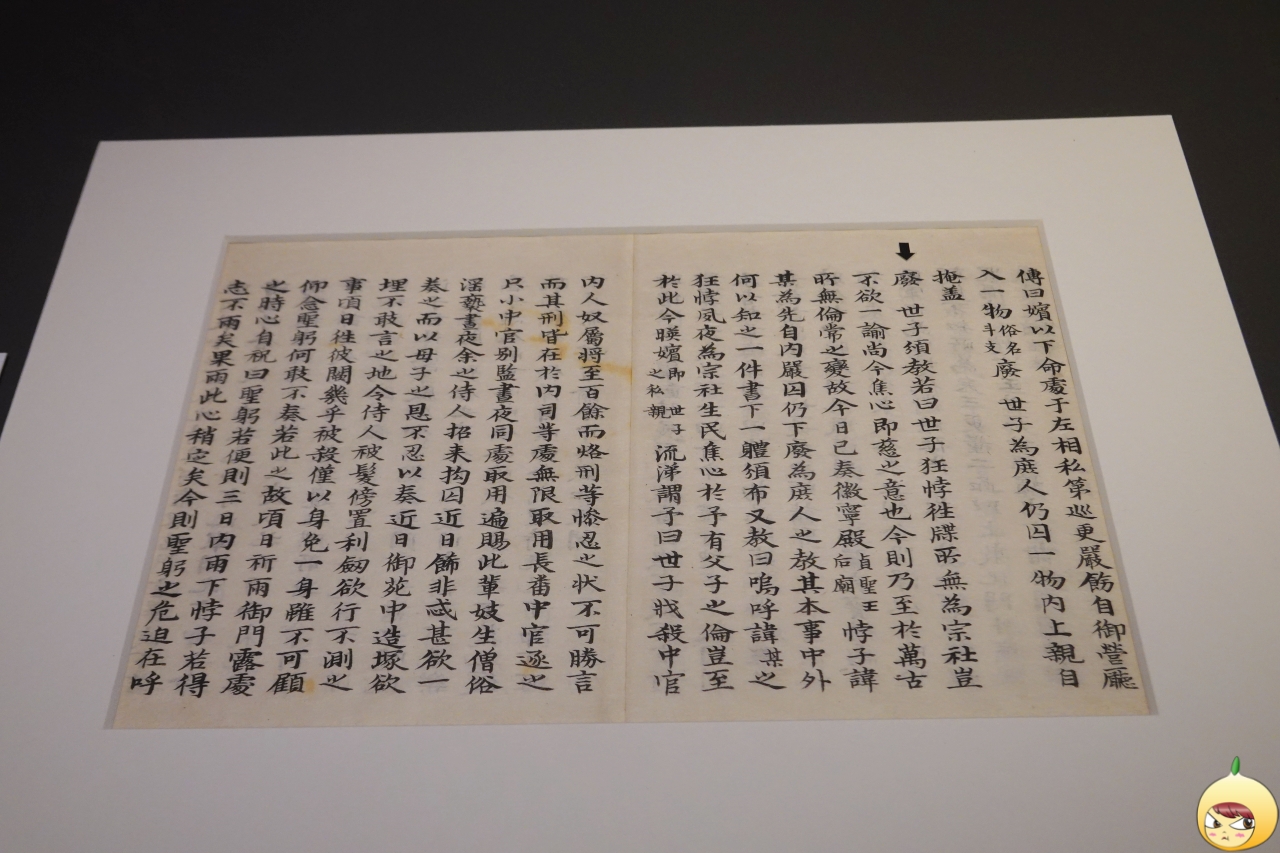 傳曰嬪以下命處于左相私第巡更嚴飭自御營廳
入一物俗名斗支廢 世子為庶人仍囚一物內上親自
掩盖
廢 世子頒教若曰世子狂悖徃牒所無為宗社豈
不欲一諭尚今焦心即慈之意也今則乃至於萬古
所無倫常之變故今日已奏徽寧殿貞聖王后廟悖子諱
某為先自內嚴囚仍下廢為庶人之教其本事中外
何以知之一件書下一體頒布又教曰嗚呼諱某之
狂悖夙夜為宗社生民焦心於予有父子之倫豈至
於此今暎嬪即 世子之私親流涕謂予曰世子戕殺中官
內人奴屬將至百餘而烙刑等慘忍之狀不可勝言
而其刑皆在於內司等處無限取用長番中官逐之
只小中官別監晝夜同處取用遍賜此輩妓生僧俗
淫褻晝夜余之侍人招来拘囚近日飾非忒甚欲一
奏之而以母子之恩不忍以奏近日御苑中造塚欲
埋不敢言之地令侍人被髮傍置利劒欲行不測之
事頃日徃彼闕幾乎被殺僅以身免一身雖不可顧
仰念聖躬何敢不奏若此之故頃日祈雨御門露處
之時心自祝曰聖躬若便則三日內雨下悖子若得
志不雨矣果雨此心稍定矣今則聖躬之危迫在呼